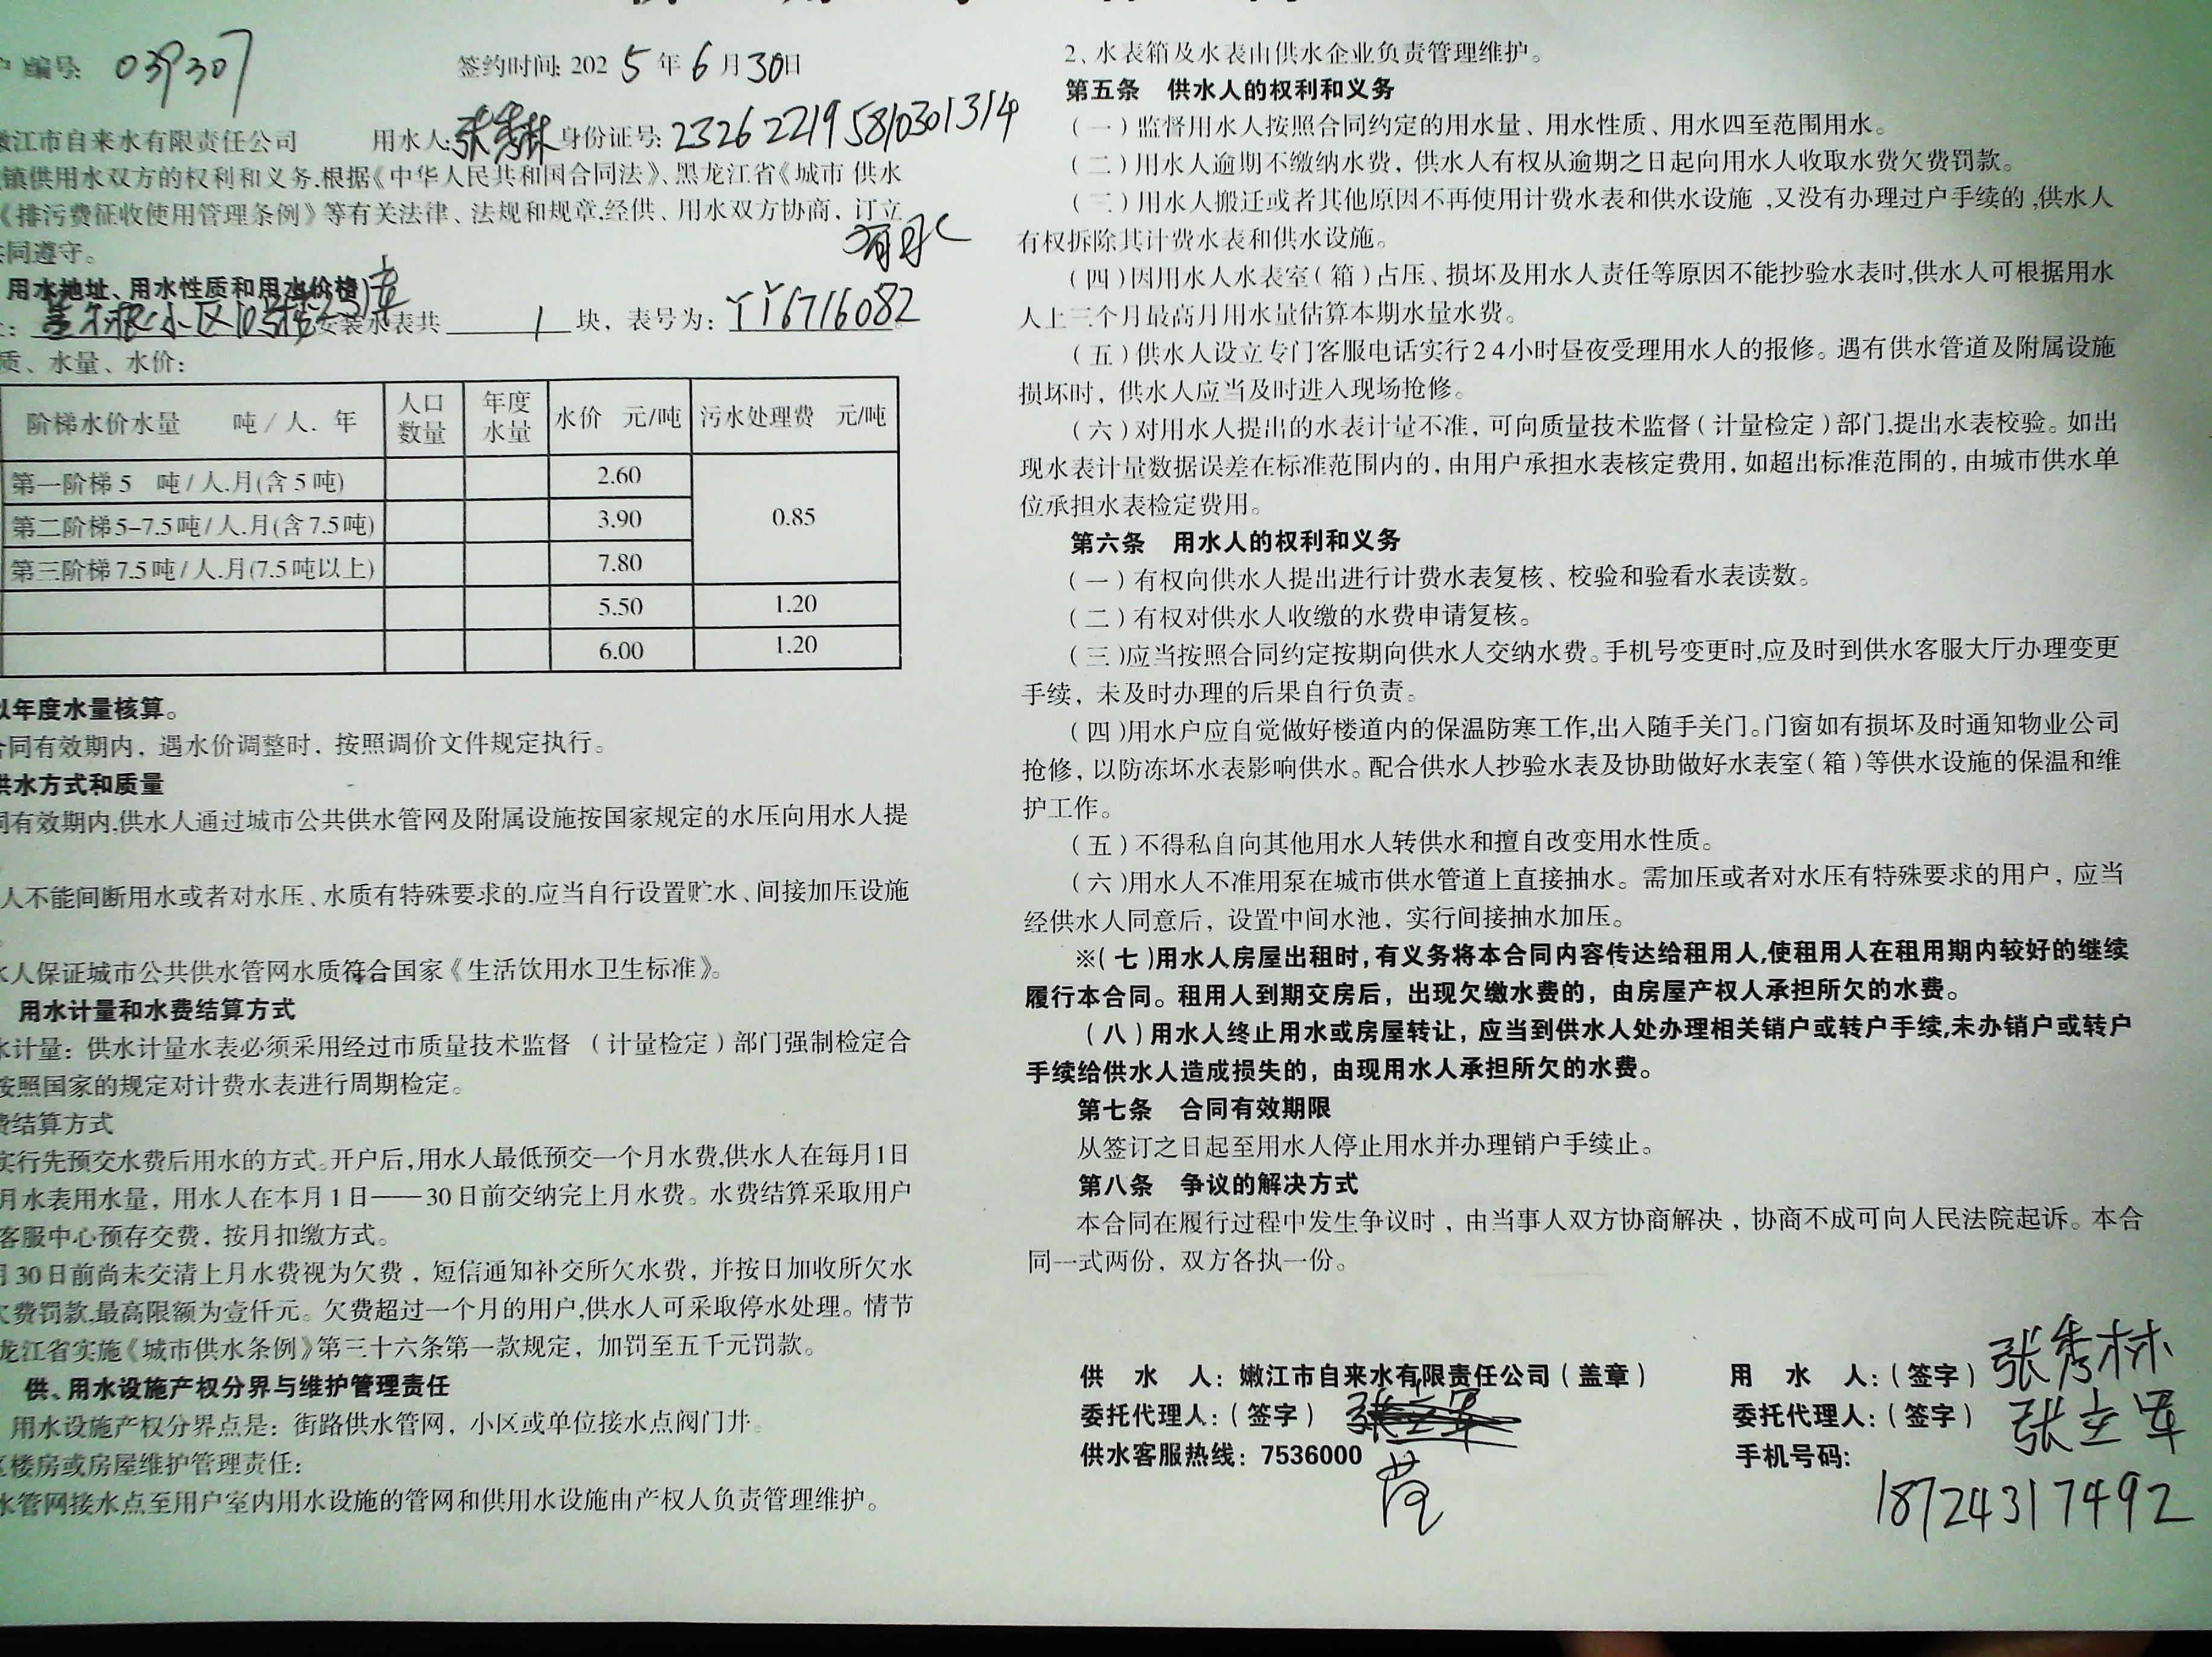 户编号: 039307 签约时间: 2025年6月30日
嫩江市自来水有限责任公司 用水人: 张秀林 身份证号: 232622195810301314
镇供用水双方的权利和义务,根据《中华人民共和国合同法》、黑龙江省《城市 供水
《排污费征收使用管理条例》等有关法律、法规和规章,经供、用水双方协商，订立
共同遵守。
用水地址、用水性质和用水价格
小区10 安装水表共 1 块，表号为: 丫丫6716082
质、水量、水价:
阶梯水价水量 吨/人.年 人口数量 年度水量 水价 元/吨 污水处理费 元/吨
第一阶梯5 吨/人.月(含5吨) 2.60 0.85
第二阶梯5-7.5吨/人.月(含7.5吨) 3.90
第三阶梯7.5吨/人.月(7.5吨以上) 7.80
5.50 1.20
6.00 1.20
以年度水量核算。
合同有效期内，遇水价调整时，按照调价文件规定执行。
供水方式和质量
同有效期内,供水人通过城市公共供水管网及附属设施按国家规定的水压向用水人提
人不能间断用水或者对水压、水质有特殊要求的,应当自行设置贮水、间接加压设施
水人保证城市公共供水管网水质符合国家《生活饮用水卫生标准》。
用水计量和水费结算方式
水计量：供水计量水表必须采用经过市质量技术监督（计量检定）部门强制检定合
按照国家的规定对计费水表进行周期检定。
费结算方式
实行先预交水费后用水的方式。开户后,用水人最低预交一个月水费,供水人在每月1日
月水表用水量，用水人在本月1日——30日前交纳完上月水费。水费结算采取用户
客服中心预存交费，按月扣缴方式。
月30日前尚未交清上月水费视为欠费，短信通知补交所欠水费，并按日加收所欠水
欠费罚款,最高限额为壹仟元。欠费超过一个月的用户,供水人可采取停水处理。情节
龙江省实施《城市供水条例》第三十六条第一款规定，加罚至五千元罚款。
供、用水设施产权分界与维护管理责任
用水设施产权分界点是：街路供水管网，小区或单位接水点阀门井。
区楼房或房屋维护管理责任：
水管网接水点至用户室内用水设施的管网和供用水设施由产权人负责管理维护。
2、水表箱及水表由供水企业负责管理维护。
第五条 供水人的权利和义务
（一）监督用水人按照合同约定的用水量、用水性质、用水四至范围用水。
（二）用水人逾期不缴纳水费，供水人有权从逾期之日起向用水人收取水费欠费罚款。
（三）用水人搬迁或者其他原因不再使用计费水表和供水设施,又没有办理过户手续的,供水人
有权拆除其计费水表和供水设施。
（四）因用水人水表室（箱）占压、损坏及用水人责任等原因不能抄验水表时,供水人可根据用水
人上三个月最高月用水量估算本期水量水费。
（五）供水人设立专门客服电话实行24小时昼夜受理用水人的报修。遇有供水管道及附属设施
损坏时，供水人应当及时进入现场抢修。
（六）对用水人提出的水表计量不准，可向质量技术监督（计量检定）部门,提出水表校验。如出
现水表计量数据误差在标准范围内的，由用户承担水表核定费用，如超出标准范围的，由城市供水单
位承担水表检定费用。
第六条 用水人的权利和义务
（一）有权向供水人提出进行计费水表复核、校验和验看水表读数。
（二）有权对供水人收缴的水费申请复核。
（三）应当按照合同约定按期向供水人交纳水费。手机号变更时,应及时到供水客服大厅办理变更
手续，未及时办理的后果自行负责。
（四）用水户应自觉做好楼道内的保温防寒工作,出入随手关门。门窗如有损坏及时通知物业公司
抢修，以防冻坏水表影响供水。配合供水人抄验水表及协助做好水表室（箱）等供水设施的保温和维
护工作。
（五）不得私自向其他用水人转供水和擅自改变用水性质。
（六）用水人不准用泵在城市供水管道上直接抽水。需加压或者对水压有特殊要求的用户，应当
经供水人同意后，设置中间水池，实行间接抽水加压。
※（七）用水人房屋出租时，有义务将本合同内容传达给租用人,使租用人在租用期内较好的继续
履行本合同。租用人到期交房后，出现欠缴水费的，由房屋产权人承担所欠的水费。
（八）用水人终止用水或房屋转让，应当到供水人处办理相关销户或转户手续,未办销户或转户
手续给供水人造成损失的，由现用水人承担所欠的水费。
第七条 合同有效期限
从签订之日起至用水人停止用水并办理销户手续止。
第八条 争议的解决方式
本合同在履行过程中发生争议时，由当事人双方协商解决，协商不成可向人民法院起诉。本合
同一式两份，双方各执一份。
供 水 人：嫩江市自来水有限责任公司（盖章） 用 水 人：（签字）张秀林
委托代理人：（签字） 委托代理人：（签字）张立军
供水客服热线：7536000 手机号码：
18724317492